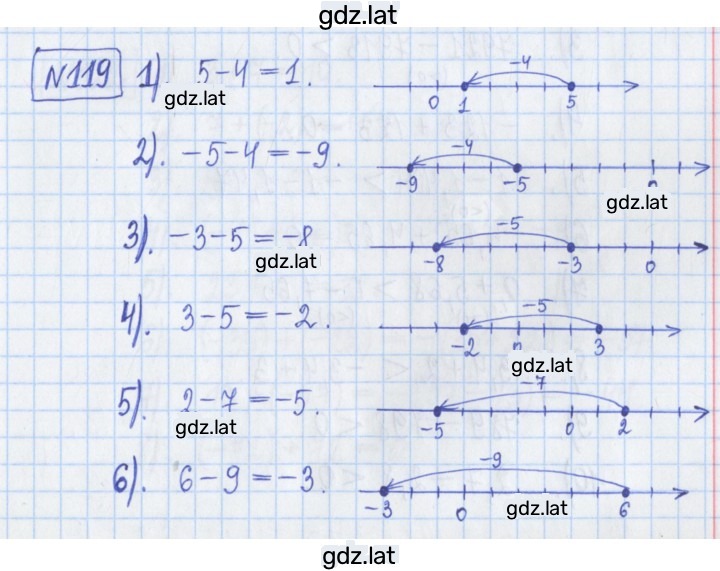 gdz.lat
N119 1) 5-4=1. -4 0 1 5
gdz.lat
2). -5-4=-9. -4 -9 -5
gdz.lat
3). -3-5=-8 -5 -8 -3 0
gdz.lat
4). 3-5=-2. -5 -2 3
gdz.lat
5). 2-7=-5. -7 -5 0 2
gdz.lat
6). 6-9=-3. -9 -3 0 6
gdz.lat
gdz.lat